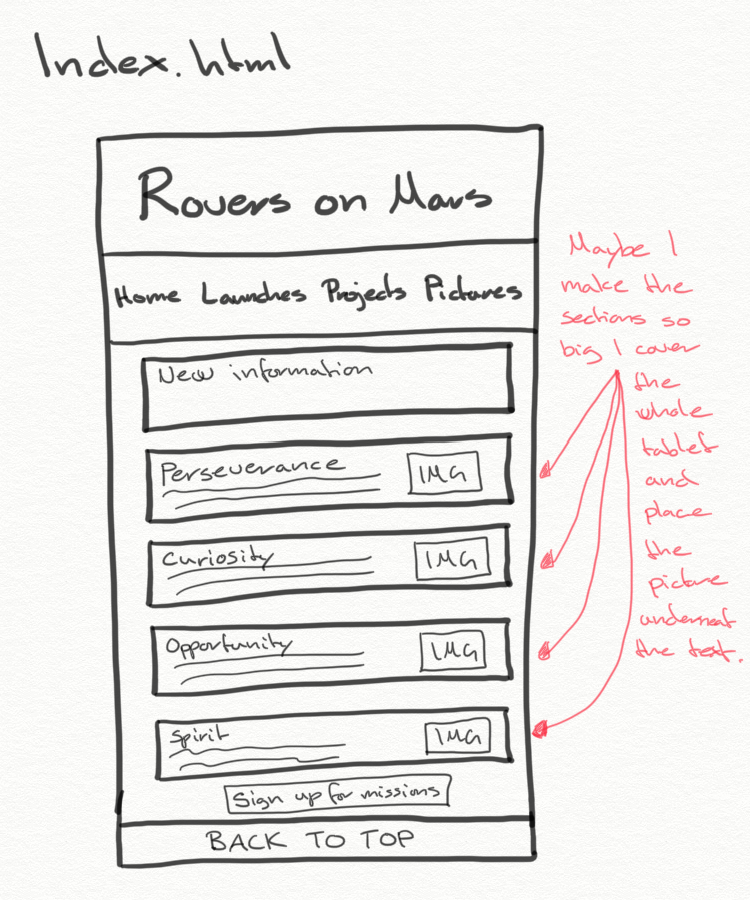 Index.html
Rovers on Mars
Home Launches Projects Pictures
New information
Perseverance
IMG
Curiosity
IMG
Opportunity
IMG
Spirit
IMG
Sign up for missions
BACK TO TOP
Maybe I
make the
sections so
big I cover
the
whole
tablet
and
place
the
picture
underneat
the text.